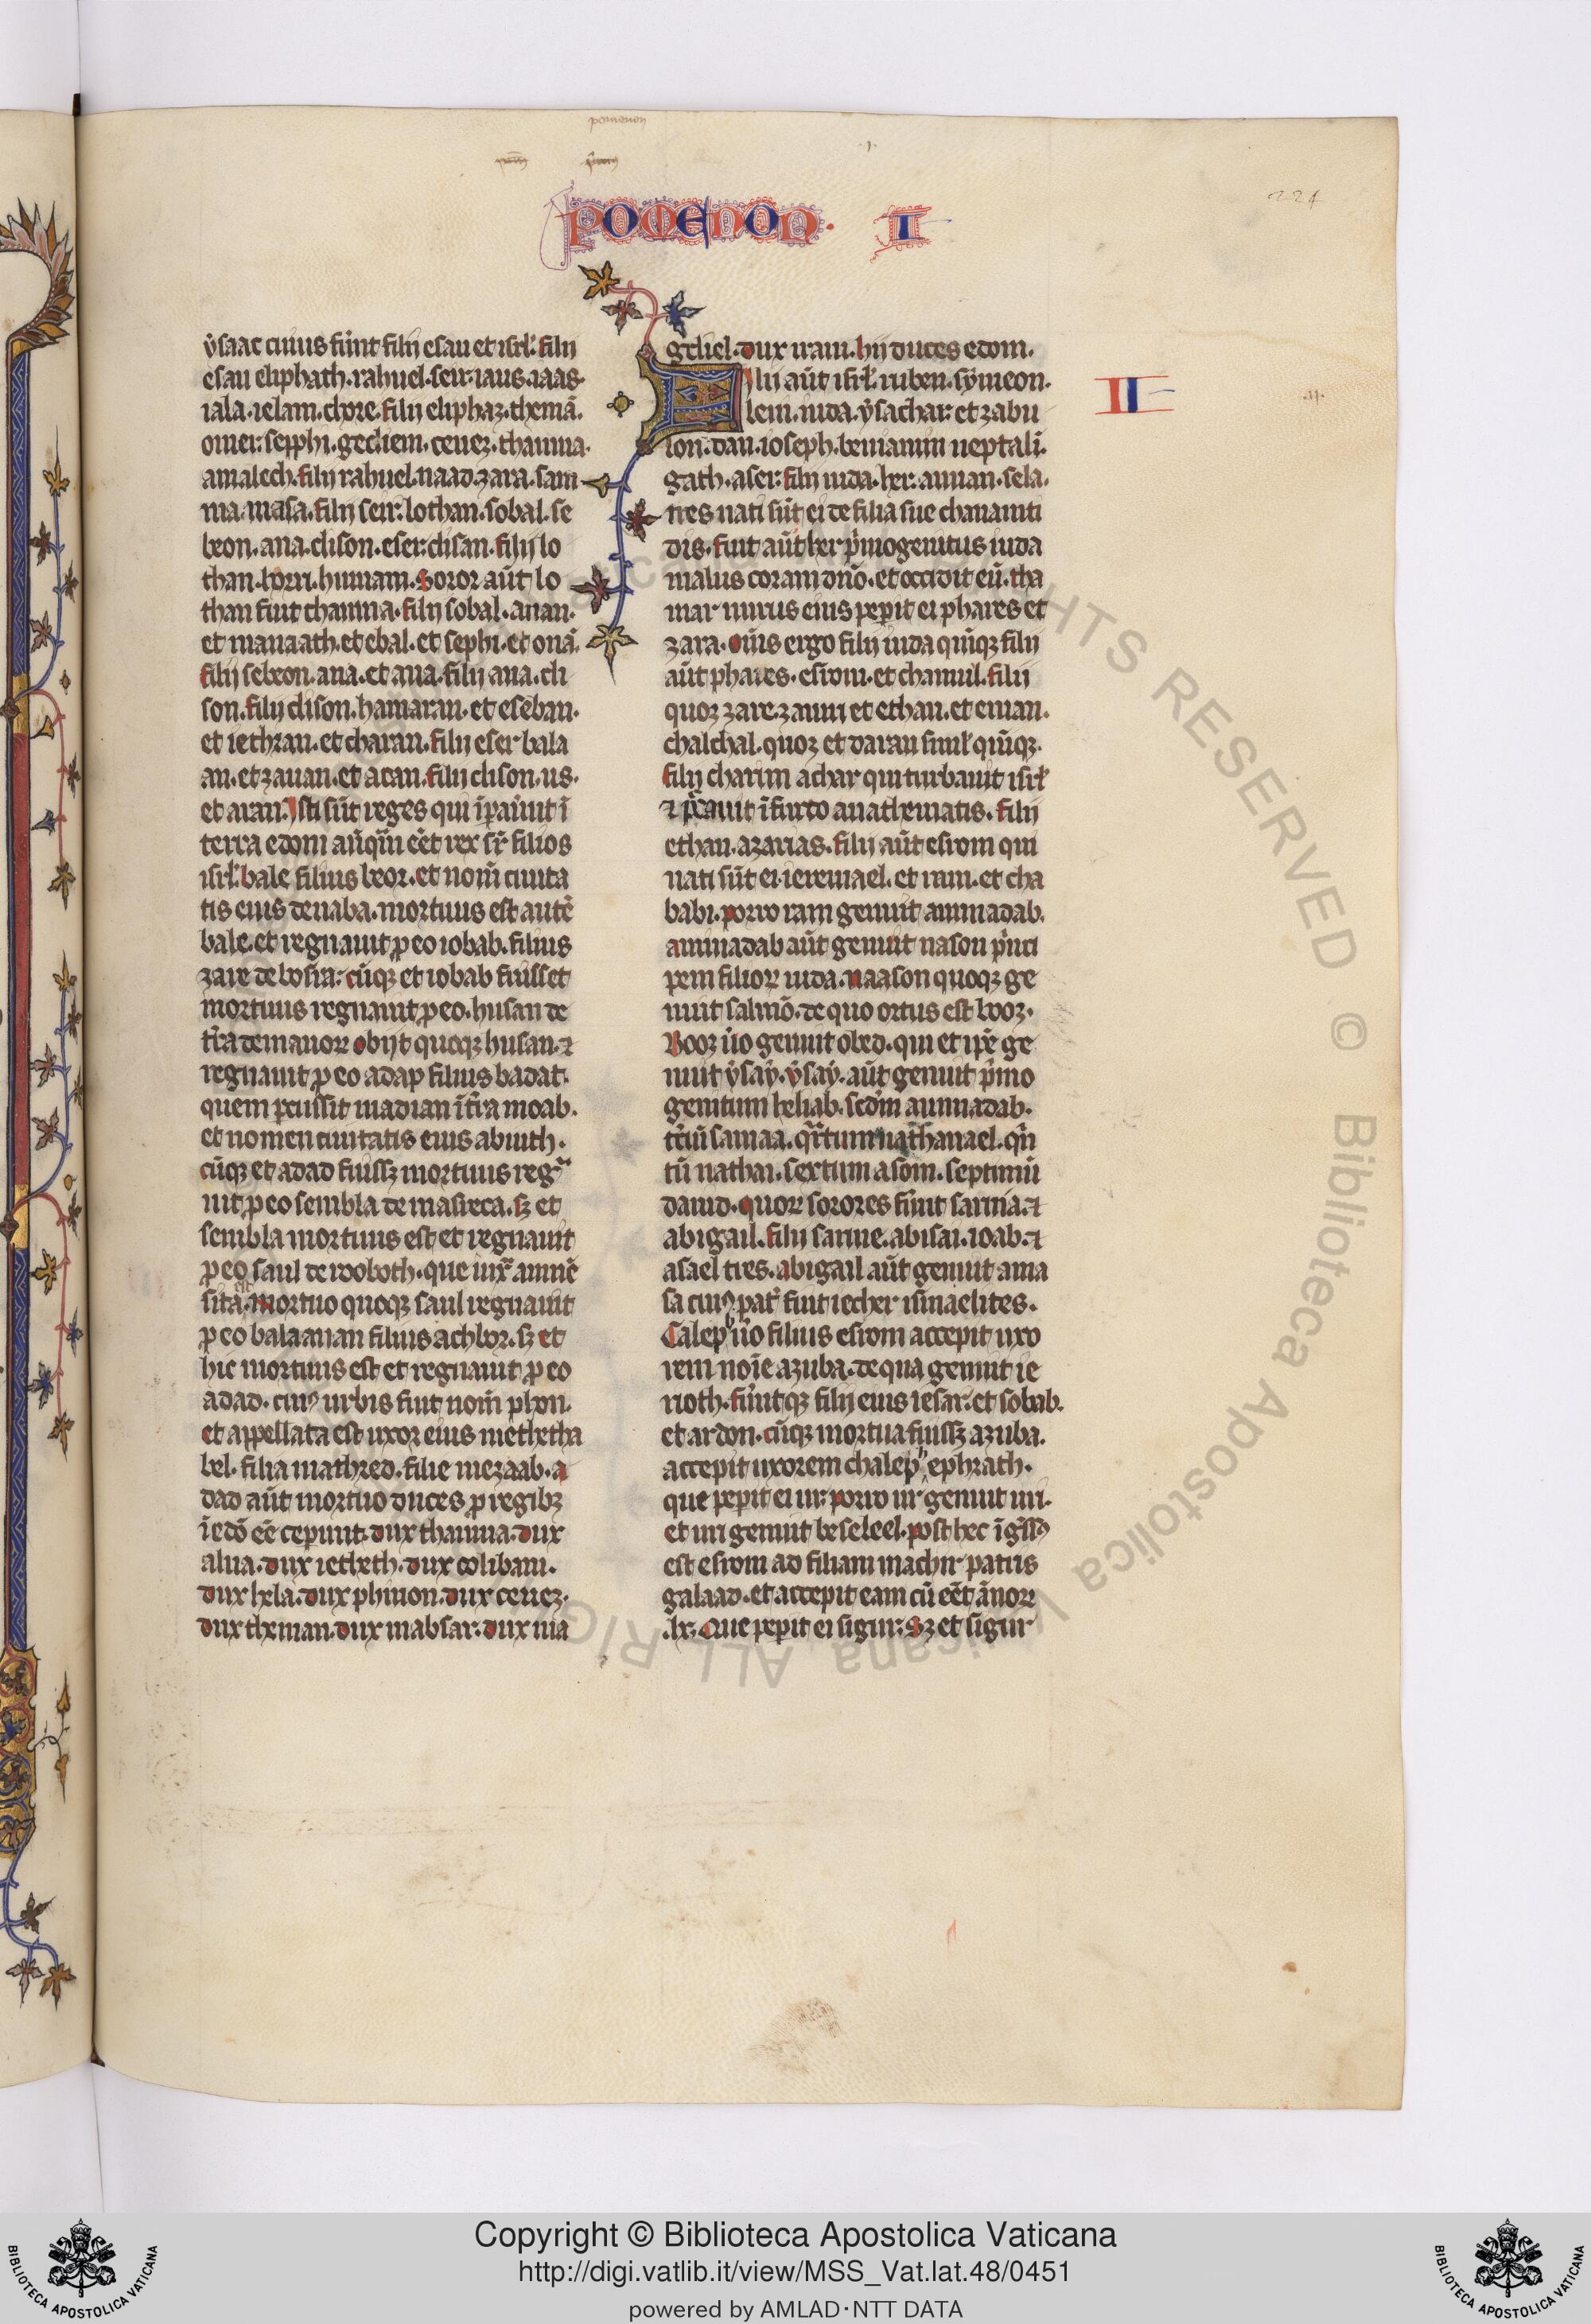 pomenon
POMENON. I
224
ysaac cuius fuerũt filij esau et isrl'. filij
esau eliphath. rahuel. seir. iaus. iaas.
iala. ielam. chore. filij eliphaz. themã.
omer. sepphi. gethem. cenez. thamna.
amalech. filij rahuel. naad. zara. sam
ma. masa. filij seir. lothan. sobal. se
beon. ana. dison. eser. disan. filij lo
than. horri. humam. Soror aũt lo
than fuit thamna. filij sobal. anan.
et manaath. et ebal. et sephi. et onã.
filij sebeon. ana. et ana. filij ana. di
son. filij dison. hamaran. et eseban.
et iethran. et charan. filij eser bala
an. et zauan. et acan. filij dison. us.
et aran. Isti sũt reges qui ĩpauũt ĩ
terra edom añq̃m eẽt rex sr̃ filios
isrl'. bale filius beor. et nom̃ ciuita
tis eius denaba. mortuus est autẽ
bale. et regnauit ꝓ eo iobab. filius
zare de bosra. cũqꝫ et iobab fuisset
mortuus regnauit ꝓ eo. husan de
tr̃a demanoꝝ obijt quoqꝫ husan. ⁊
regnauit ꝓ eo adap filius badat.
quem ꝑcussit madian ĩ tr̃a moab.
et nomen ciuitatis eius abiuth.
cũqꝫ et adad fuissꝫ mortuus regna
uit ꝓ eo sembla de masreca. sꝫ et
sembla mortuus est et regnauit
ꝓ eo saul de rooboth. que iux̃ amnẽ
sita est. mortuo quoqꝫ saul regnauit
ꝓ eo balaanan filius achbor. sꝫ et
hic mortuus est et regnauit ꝓ eo
adad. cuiꝰ urbis fuit nom̃ phou.
et appellata est uxor eius methetha
bel. filia mathred. filie mezaab. a
dad aũt mortuo duces ꝓ regibꝫ
ĩ edõ eẽ ceperunt. dux thamna. dux
alua. dux ietheth. dux oolibam.
dux hela. dux phinon. dux cenez.
dux theman. dux mabsar. dux ma
gdiel. dux iram. hij duces edom.
II
Filij aũt isrl'. ruben. symeon.
leui. iuda. ysachar. et zabu
lon. dan. ioseph. beniamin neptali.
gath. aser. filij iuda. her. aunan. sela.
tres nati sũt ei de filia sue chananiti
dis. fuit aũt her p̃mogenitus iuda
malus coram dño. et occidit eũ. tha
mar nurus eius peperit ei phares et
zara. Oms̃ ergo filij iuda quinqꝫ filij
aũt phares. esrom. et chamul. filij
quoqꝫ zare. zamri et ethan. et eman.
chalchal. quoqꝫ et daran simul' quĩqꝫ.
filij charim achar qui turbauit isrl'
⁊ pc̃cauit ĩ furto anathematis. filij
ethan. azarias. filij aũt esrom qui
nati sũt ei. ieremael. et ram. et cha
babi. porro ram genuit aminadab.
aminadab aũt genuit nason p̃nci
pem filioꝝ iuda. naason quoqꝫ ge
nuit salmõ. de quo ortus est booz.
Booz ũo genuit obed. qui et ip̃e ge
nuit ysay. ysay. aũt genuit p̃mo
genitum heliab. sc̃dm aminadab.
tc̃iũ samaa. qr̃tum nathanael. qñ
tũ nathai. sextum asom. septimũ
dauid. quoꝝ sorores fuerũt saruia. ⁊
abigail. filij saruie. abisai. ioab. ⁊
asael tres. abigail aũt genuit ama
sa cuiꝰ pat̃ fuit iether ismaelites.
Caleph ũo filius esrom accepit uxo
rem noĩe azuba. de qua genuit ie
rioth. fuerũtqꝫ filij eius iesar. et sobab.
et ardon. cũqꝫ mortua fuissꝫ azuba.
accepit uxorem chaleph ephrath.
que peperit ei ur. porro ur genuit uri.
et uri genuit beseleel. post hec ĩgr̃ssꝰ
est esrom ad filiam machir patris
galaad. et accepit eam cũ eẽt ãnoꝝ
.lx. Que peperit ei sigur. Sꝫ et sigur
Copyright © Biblioteca Apostolica Vaticana
http://digi.vatlib.it/view/MSS_Vat.lat.48/0451
powered by AMLAD·NTT DATA